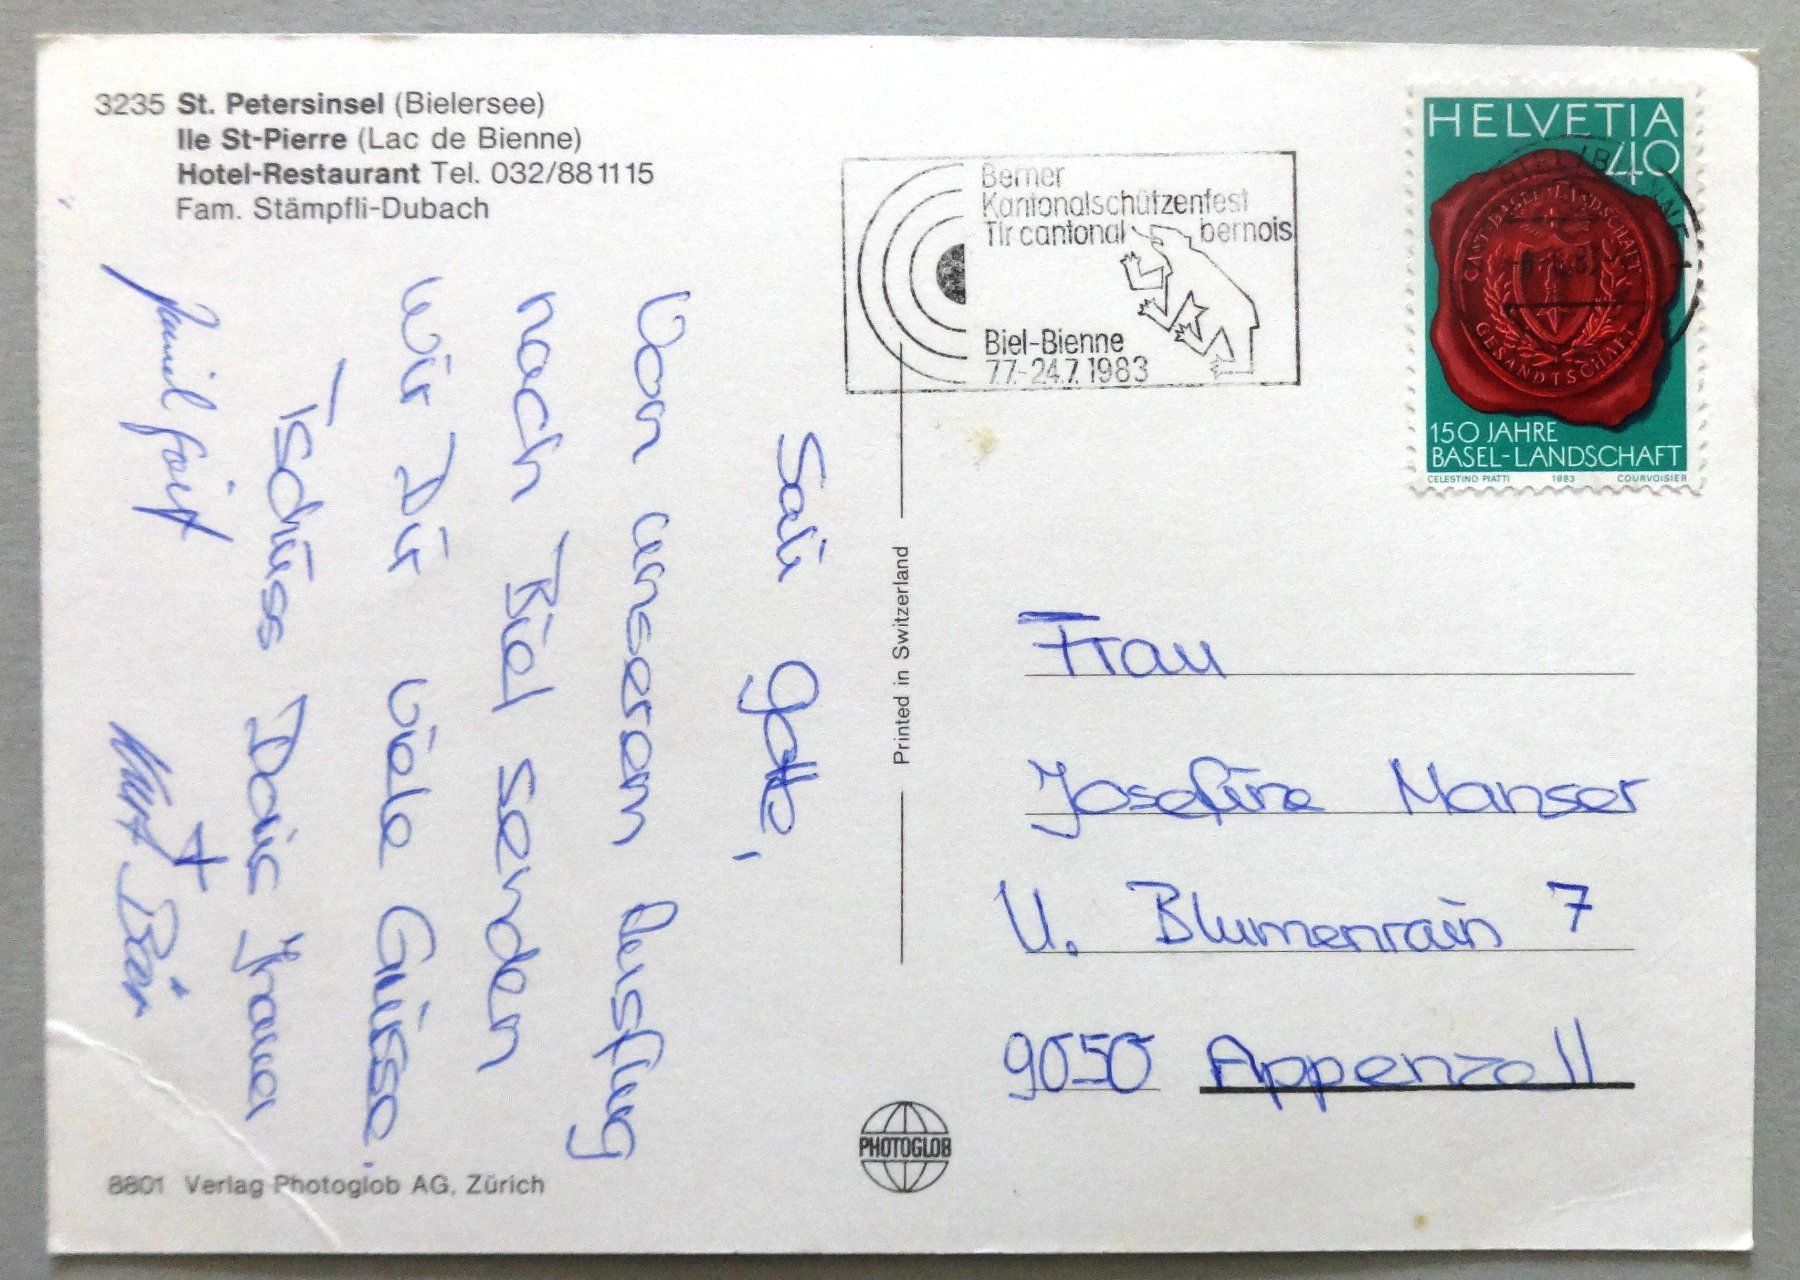 3235 St. Petersinsel (Bielersee)
Ile St-Pierre (Lac de Bienne)
Hotel-Restaurant Tel. 032/881115
Fam. Stämpfli-Dubach
Sali Gotte,
Von unserem Ausflug
nach Biel senden
wir Dir viele Grüsse.
Tschüss Dein
Kurt +
8801 Verlag Photoglob AG, Zürich
Printed in Switzerland
PHOTOGLOB
Berner
Kantonalschützenfest
Tir cantonal bernois
Biel-Bienne
7.7.-24.7.1983
HELVETIA
40
CANT. BASEL-LANDSCHAFT.
GESANDTSCHAFT
150 JAHRE
BASEL-LANDSCHAFT
CELESTINO PIATTI 1983 COURVOISIER
Frau
Josefine Manser
U. Blumenrain 7
9050 Appenzell